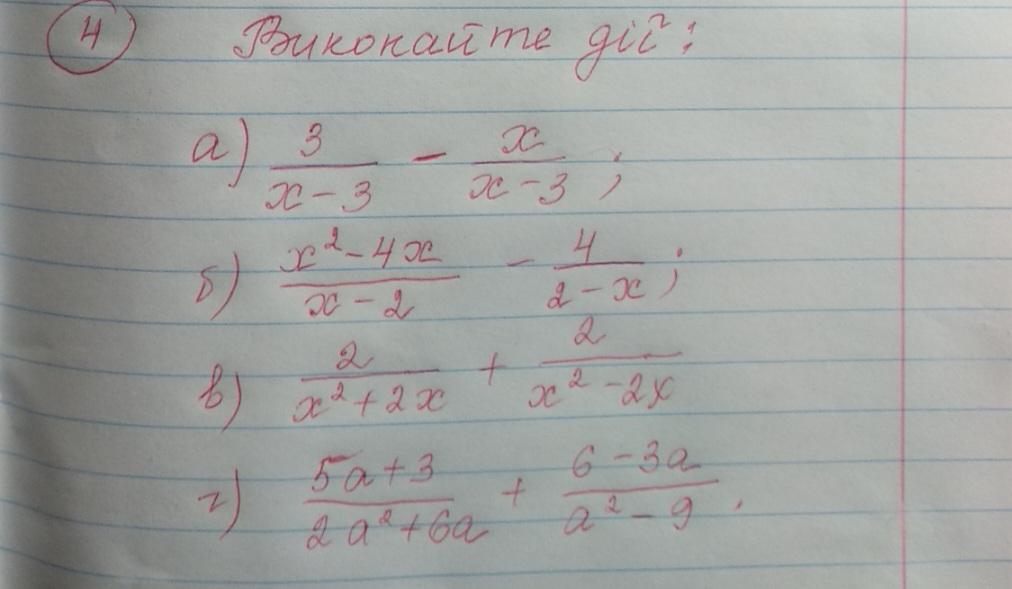 4 Виконайте дії:
а) 3/(x-3) - x/(x-3);
б) (x²-4x)/(x-2) - 4/(2-x);
в) 2/(x²+2x) + 2/(x²-2x)
г) (5a+3)/(2a²+6a) + (6-3a)/(a²-9).